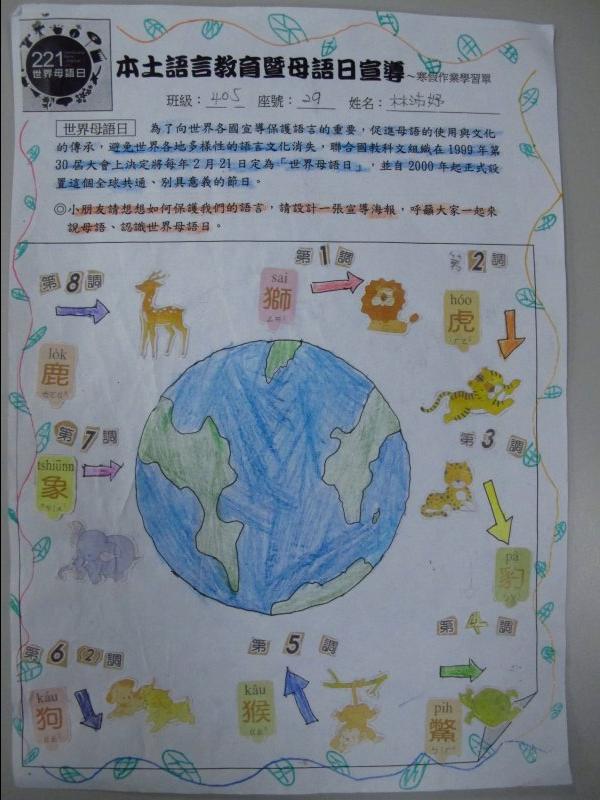 221
世界母語日
本土語言教育暨母語日宣導～寒假作業學習單
班級：405 座號：29 姓名：
世界母語日 為了向世界各國宣導保護語言的重要，促進母語的使用與文化
的傳承，避免世界各地多樣性的語言文化消失，聯合國教科文組織在1999年第
30屆大會上決定將每年2月21日定為「世界母語日」，並自2000年起正式設
置這個全球共通、別具意義的節日。
◎小朋友請想想如何保護我們的語言，請設計一張宣導海報，呼籲大家一起來
說母語、認識世界母語日。
第1調
sai
獅
第2調
hóo
虎
第3調
pà
豹
第4調
pih
鱉
第5調
kâu
猴
第6(2)調
káu
狗
第7調
tshiūnn
象
第8調
lo̍k
鹿